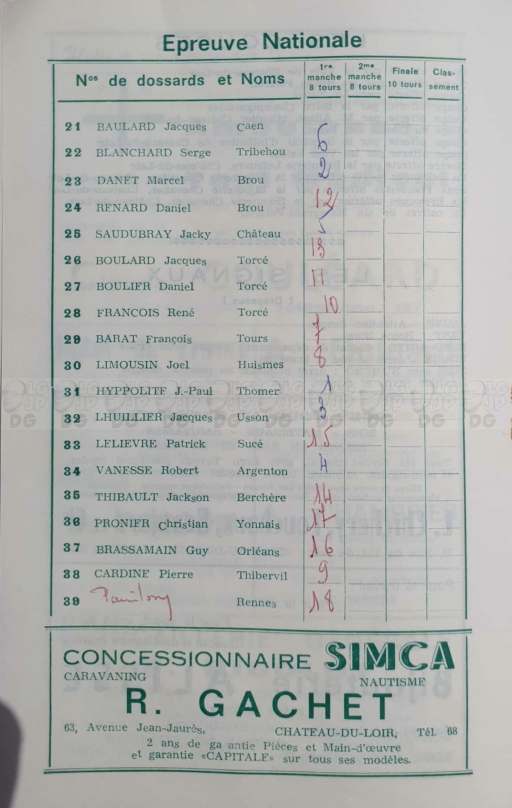 Epreuve Nationale
Nos de dossards et Noms | 1re manche 8 tours | 2me manche 8 tours | Finale 10 tours | Clas-sement
21 BAULARD Jacques Caen
22 BLANCHARD Serge Tribehou 6
23 DANET Marcel Brou 2
24 RENARD Daniel Brou 12
25 SAUDUBRAY Jacky Château 5
26 BOULARD Jacques Torcé 13
27 BOULIER Daniel Torcé 11
28 FRANCOIS René Torcé 10
29 BARAT François Tours 7
30 LIMOUSIN Joel Huismes 8
31 HYPPOLITE J.-Paul Thomer 1
32 LHUILLIER Jacques Usson 3
33 LELIEVRE Patrick Sucé 15
34 VANESSE Robert Argenton 4
35 THIBAULT Jackson Berchère 14
36 PRONIER Christian Yonnais 17
37 BRASSAMAIN Guy Orléans 16
38 CARDINE Pierre Thibervil 9
39 Rennes 18
CONCESSIONNAIRE SIMCA
CARAVANING NAUTISME
R. GACHET
63, Avenue Jean-Jaurès, CHATEAU-DU-LOIR, Tél. 68
2 ans de ga antie Pièces et Main-d'œuvre
et garantie «CAPITALE» sur tous ses modèles.